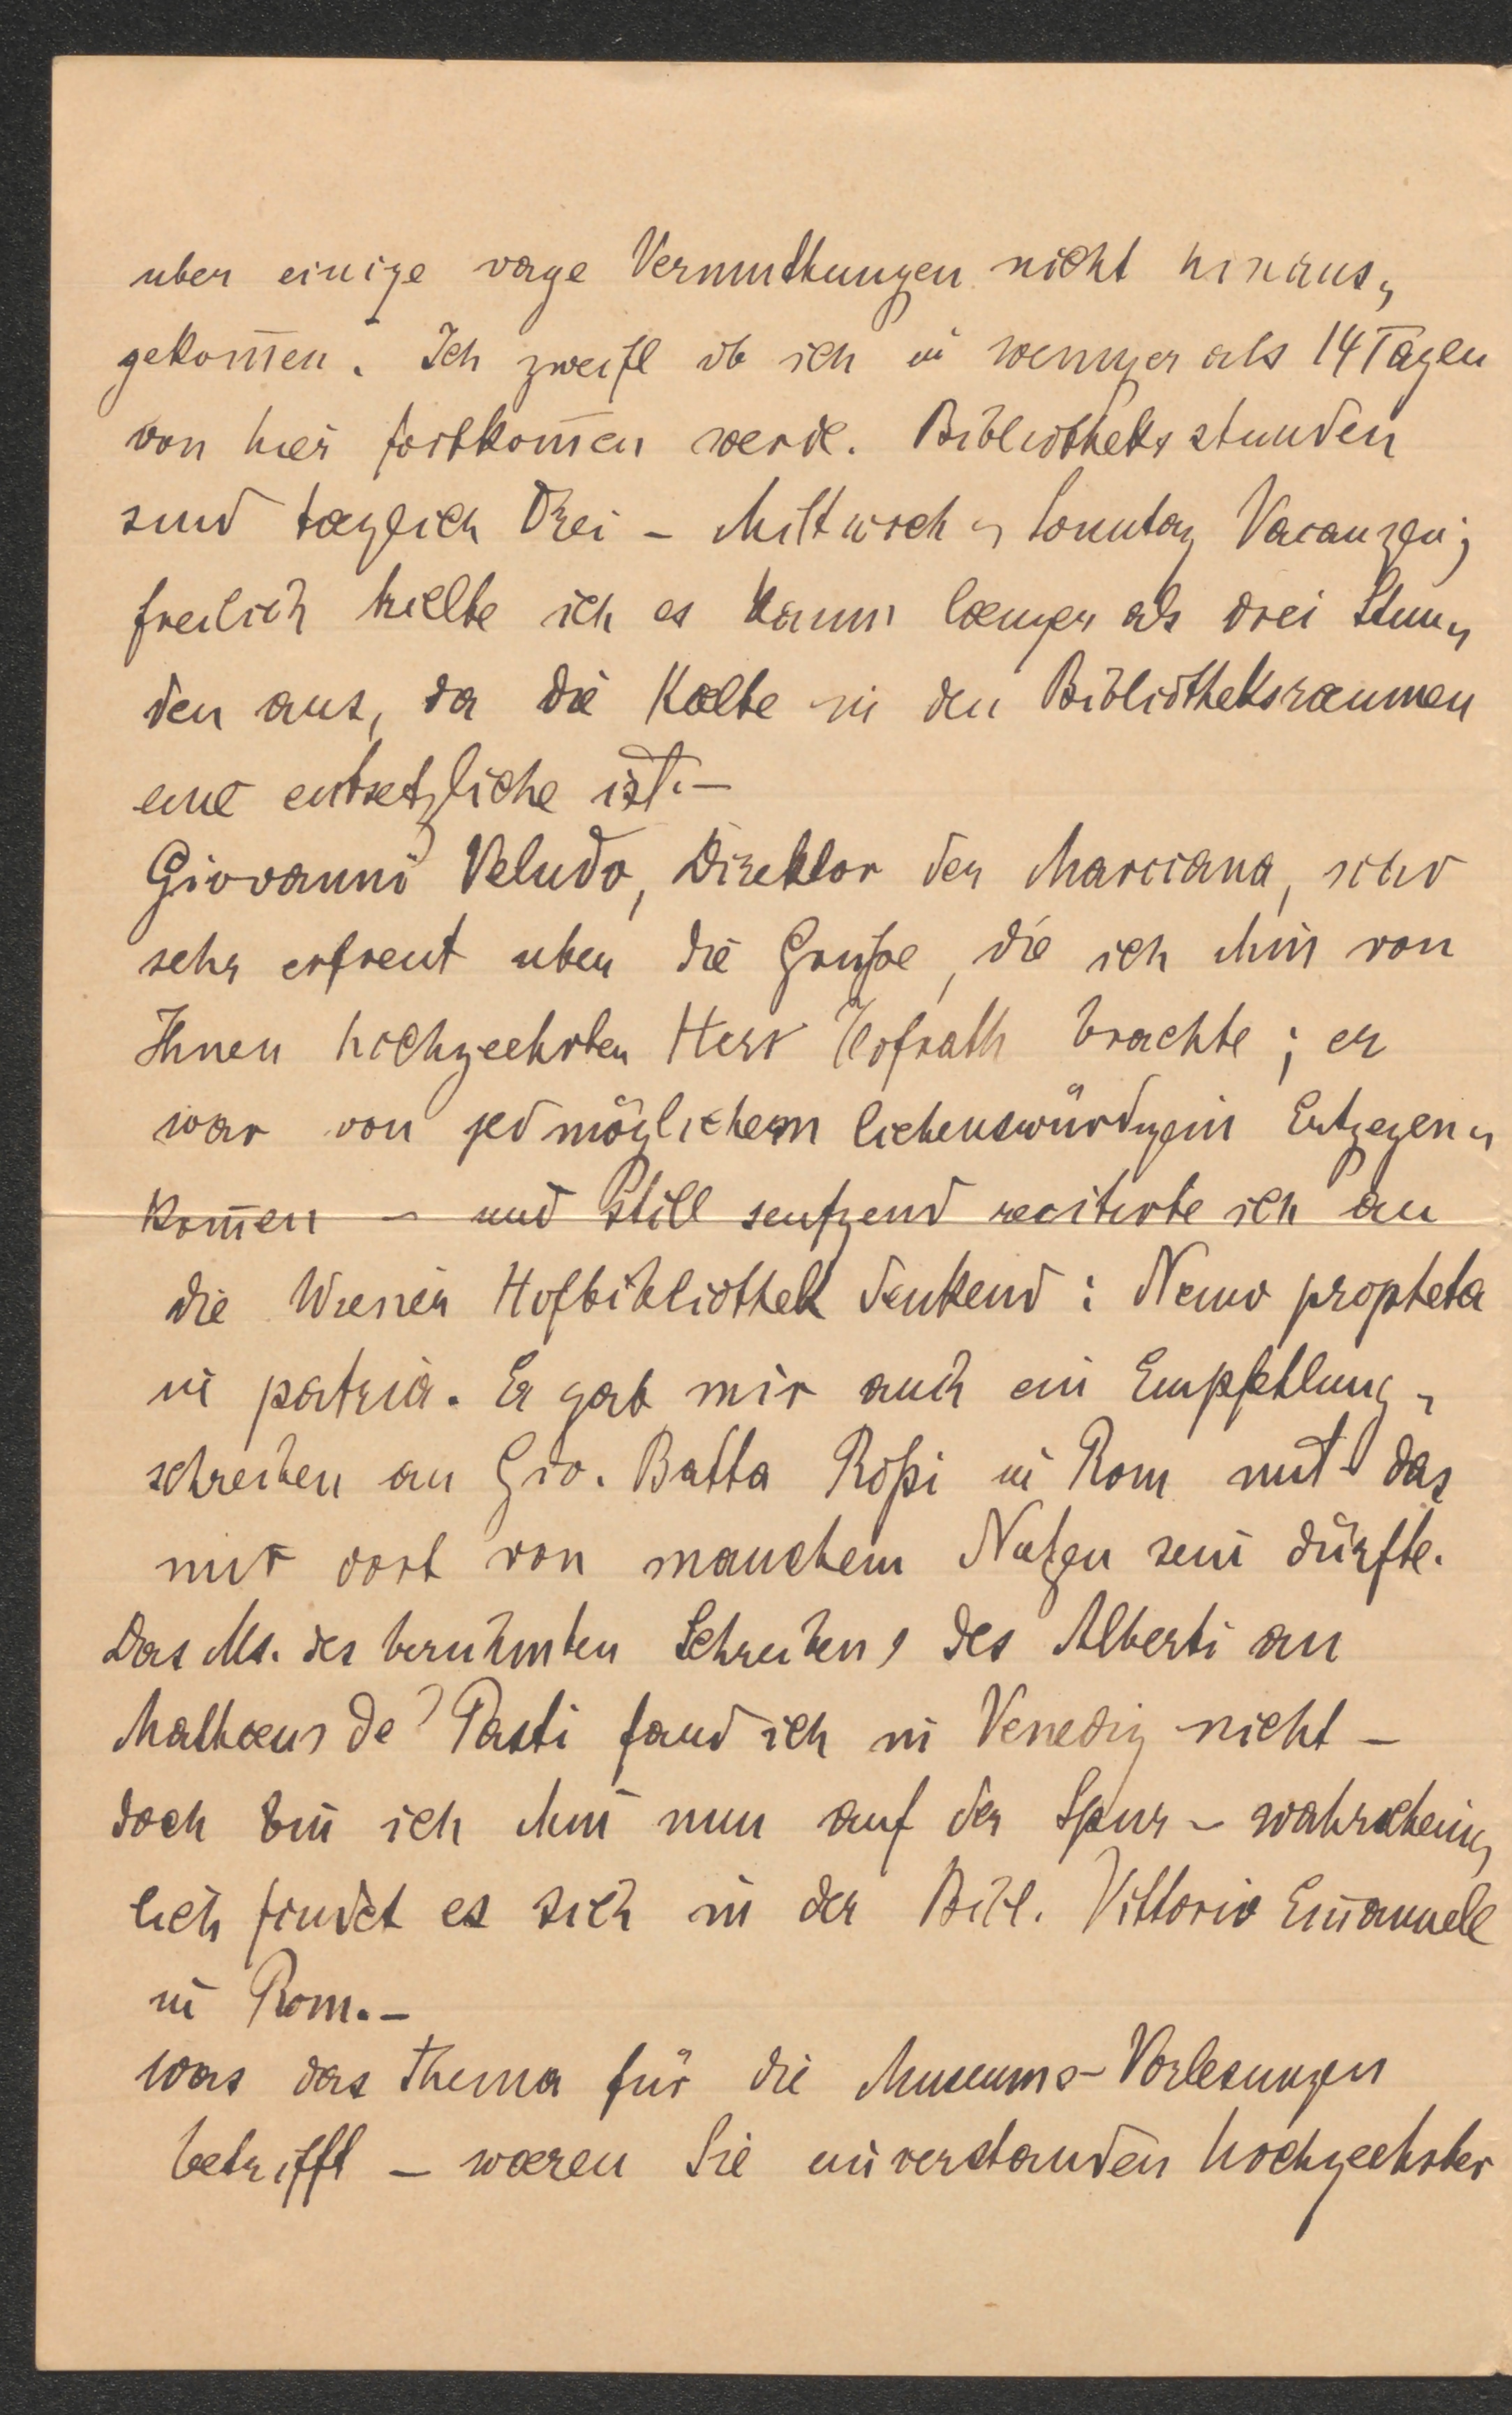 uber einige vage Vermuthungen nicht hinaus-
gekom̄en. Ich zweifl ob ich in weniger als 14 Tagen
von hier fortkom̄en werde. Bibliotheksstunden
sind tæglich Drei – Mittwoch, Sonntag Vacanzen;
freilich hielte ich es kaum længer als drei Stun-
den aus, da die Kælte in den Bibliotheksræumen
eine entsetzliche ist. –
Giovanni Veludo, Direktor der Marciana,
sehr erfreut uber die Grüße, die ich ihm von
Ihnen hochgeehrten Herr Hofrath brachte; er
war von jedmöglichem liebenswürdigem Entgegen-
kom̄en – und still seufzend recitirte ich an
die Wiener Hofbibliothek denkend: Nemo propheta
in patria. Er gab mir auch ein Empfehlung-
schreiben an Gio. Batta Roßi in Rom mit das
mir dort von manchem Nutzen sein dürfte.
Das Ms. des beruhmten Schreibens des Alberti an
Mathæus de' Pasti fand ich in Venedig nicht –
doch bin ich ihm nun auf der Spur – wahrschein-
lich findet es sich in der Bibl. Vittorio Em̄anuele
in Rom. –
Was das Thema für die Museums-Vorlesungen
betrifft – wæren Sie einverstanden hochgeehrter